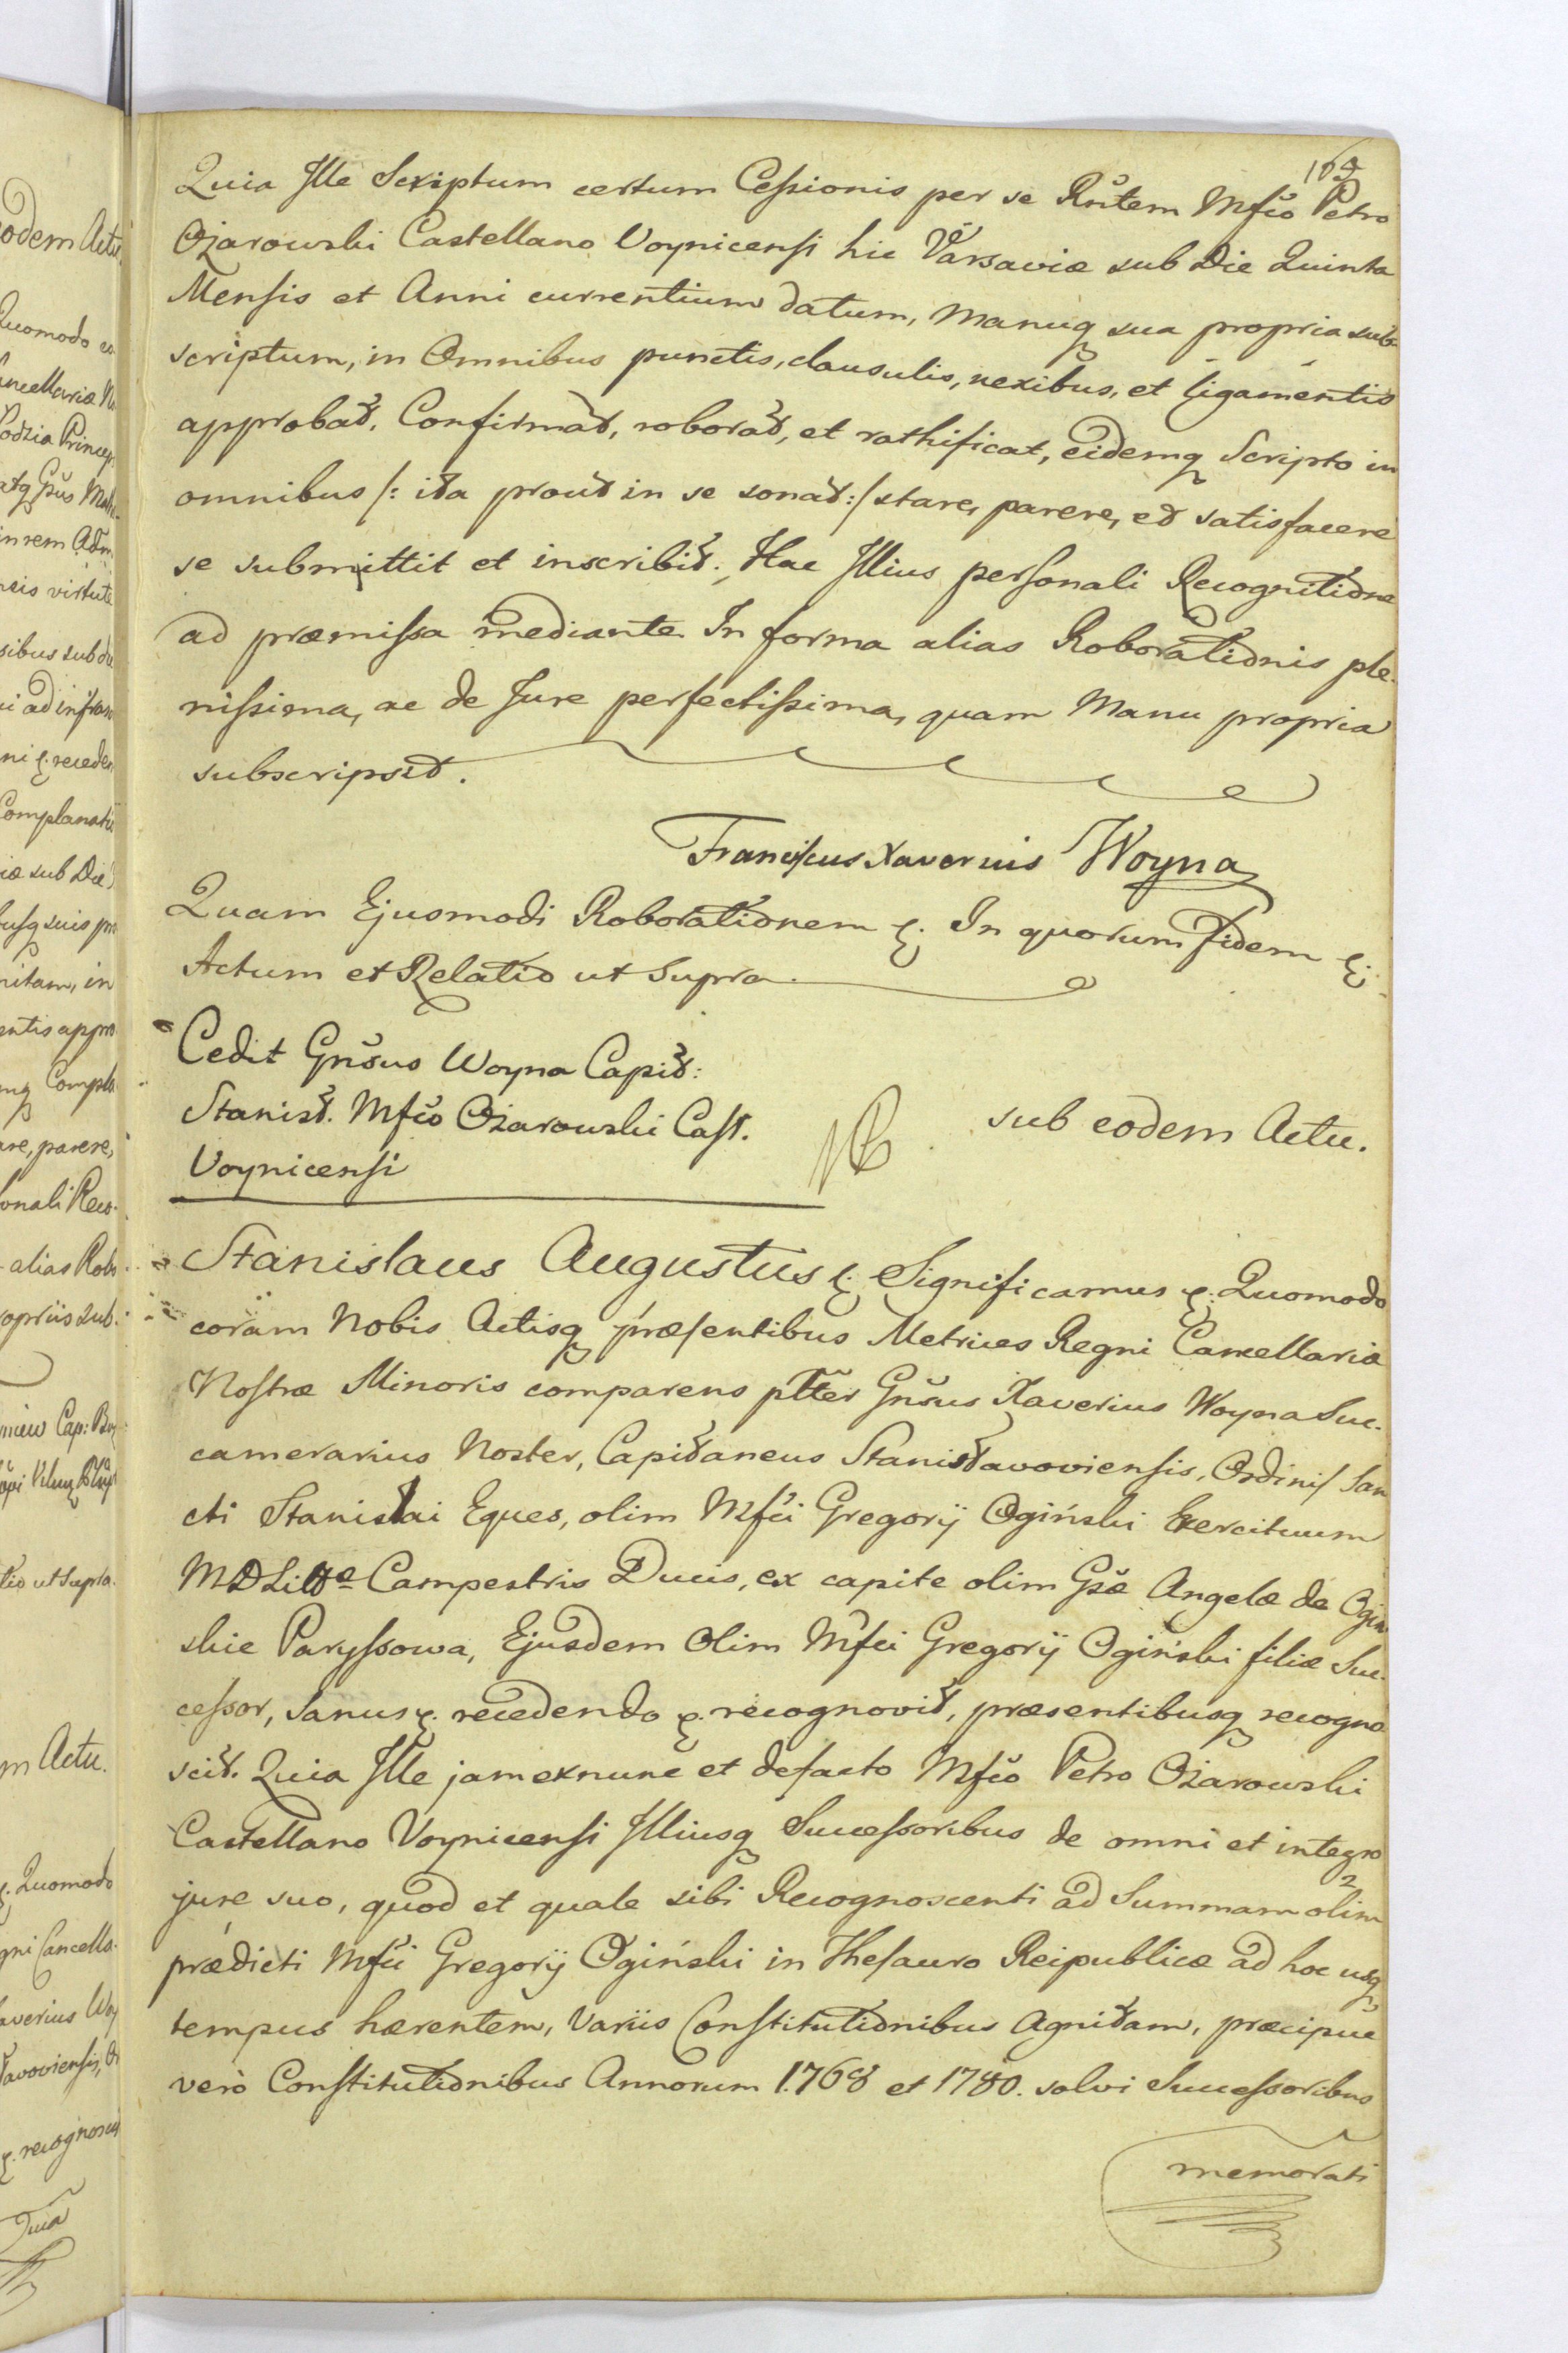 Quia Ille Scriptum certum Cessionis per se Rñtem Mfco Petro
Ożarowski Castellano Voynicensi hic Varsaviæ sub Die Quinta
Mensis et Anni currentium datum, manuq sua propria sub-
scriptum, in Omnibus punctis, clausulis, nexibus, et ligamentis
approbat, Confirmat, roborat, et rathificat, eidemq Scripto in
omnibus /: ita prout in se sonat :/ stare, parere, et satisfacere
se submittit et inscribit. Hac Illius personali Recognitione
ad præmissa mediante. In forma alias Roborationis ple-
nissima, ac de Jure perfectissima, quam Manu propria
subscripsit.
Franciscus Xaverius Woyna
Quam Ejusmodi Roborationem &. In quorum fidem &.
Actum et Relatio ut Supra.
Cedit Gnsus Woyna Capit:
Stanisł. Mfco Ożarowski Cast.
sub eodem Actu.
Voynicensi
Stanislaus Augustus &. Significamus &. Quomodo
coram Nobis Actisq præsentibus Metrices Regni Cancellariæ
Nostræ Minoris comparens pltter Gnsus Xaverius Woyna Suc-
camerarius Noster, Capitaneus Stanisławoviensis, Ordinis San
cti Stanisłai Eques, olim Mfci Gregorij Ogiński Exercituum
MDLittæ Campestris Ducis, ex capite olim Gsæ Angelæ de Ogin
skie Paryssowa, Ejusdem Olim Mfci Gregorij Ogiński filiæ Suc-
cessor, Sanus &. recedendo &. recognovit, præsentibusq recogno
scit. Quia Ille jam exnunc et defacto Mfco Petro Ożarowski
Castellano Voynicensi Illiusq Successoribus de omni et integro
jure suo, quod et quale sibi Recognoscenti ad Summam olim
prædicti Mfci Gregorij Ogiński in Thesauro Reipublicæ ad hoc usq
tempus hærentem, Variis Constitutionibus Agnitam, præcipue
verò Constitutionibus Annorum 1768 et 1780. solvi Successoribus
memorati